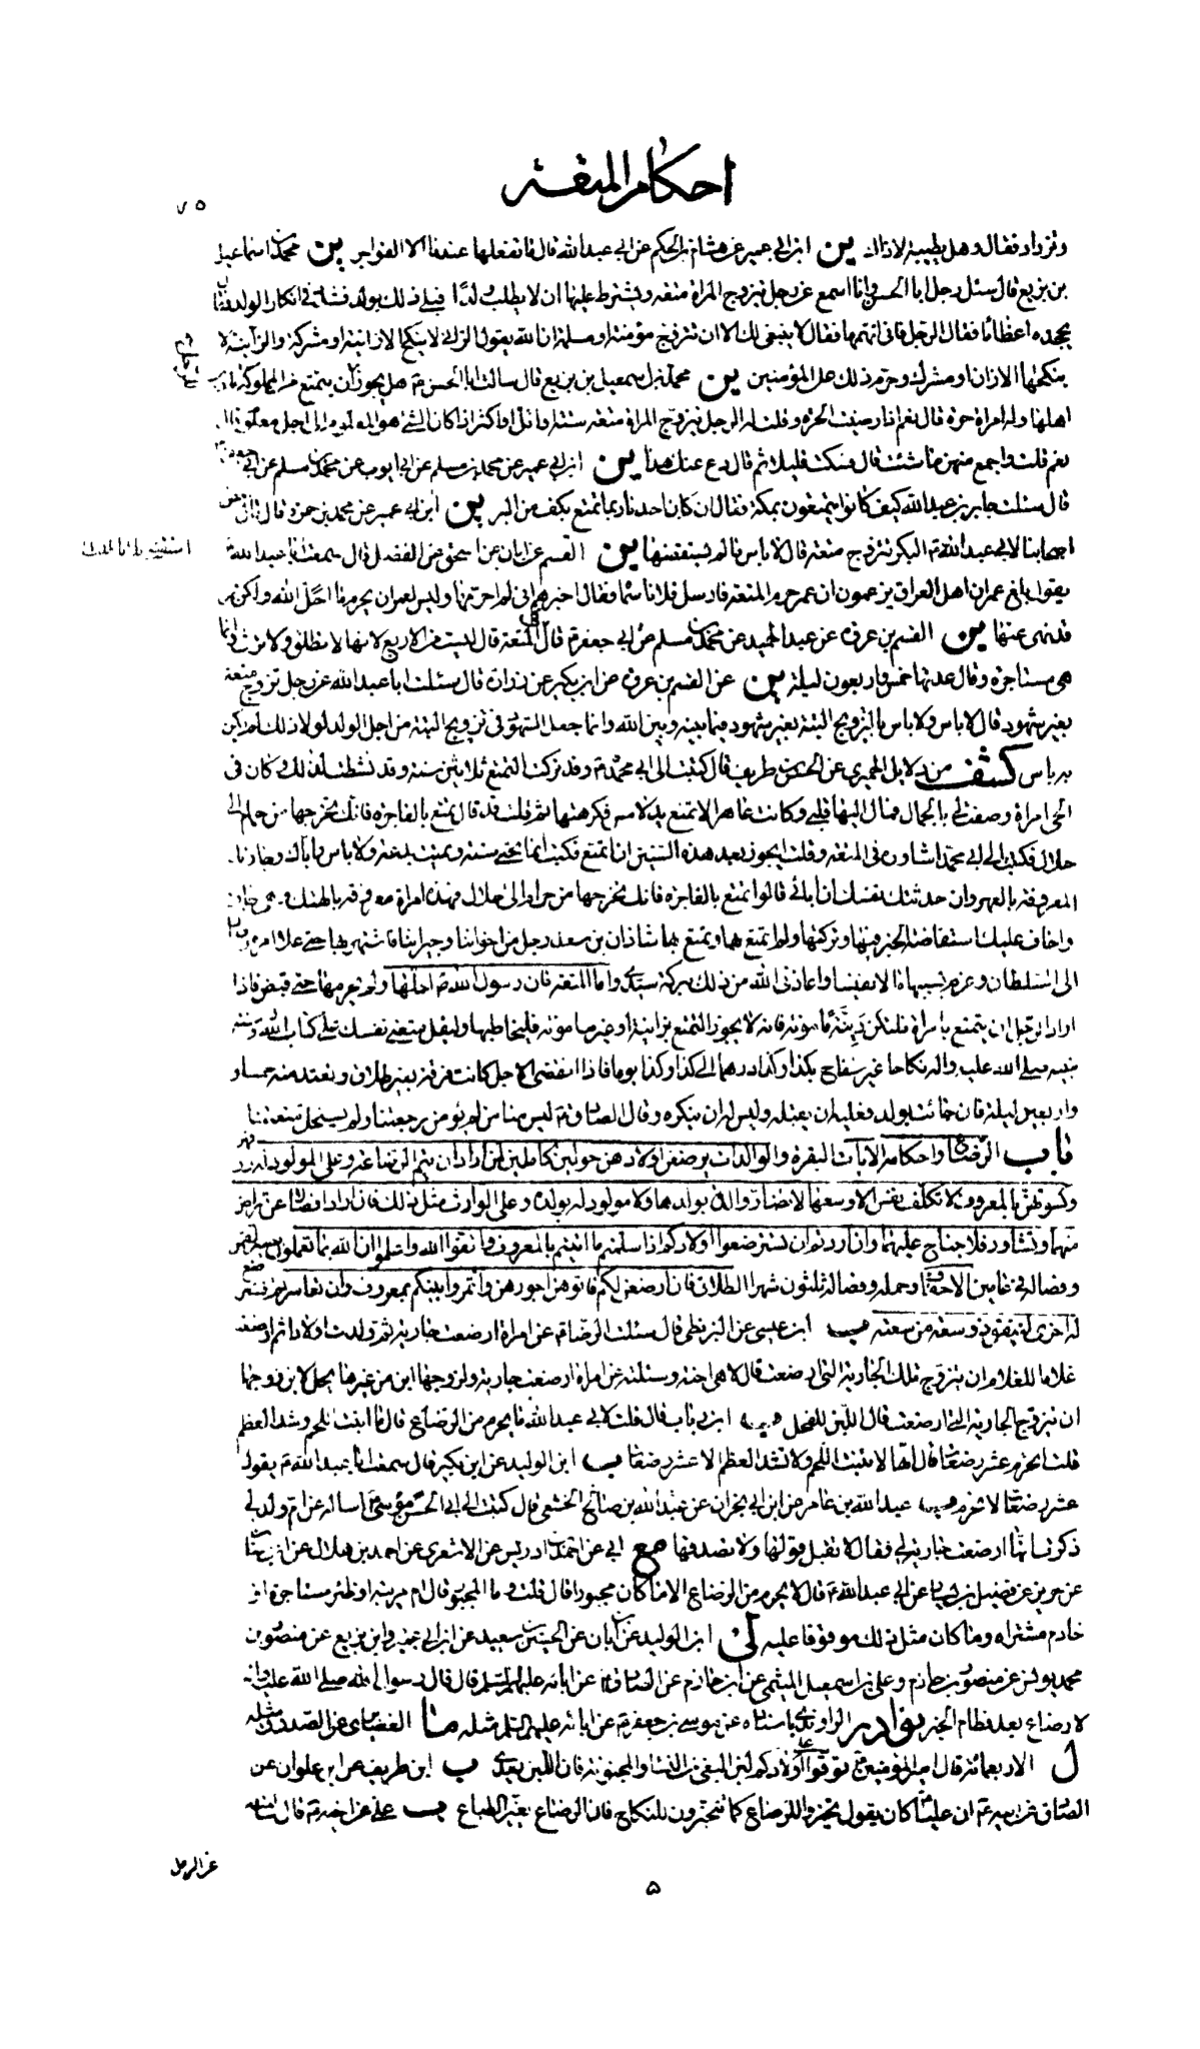 احكام المتعة
٧٥
وتزداد فقال وهل يطيبه الا ذاك ين ابن ابي عمير عن هشام بن الحكم عن ابي عبدالله قال ما تفعلها عندنا الا الفواجر ين محمد بن اسماعيل
بن بزيع قال سئل رجل ابا الحسن وانا اسمع عن رجل يتزوج المراة متعة ويشترط عليها ان لا يطلب ولدها فياتي بعد ذلك بولد فشدد في انكار الولد فقال
يجحده اعظاما فقال الرجل فاني اتهمها فقال لا ينبغي لك الا ان تتزوج مؤمنة او مسلمة ان الله يقول الزاني لا ينكح الا زانية او مشركة والزانية لا
ينكحها الا زان او مشرك وحرم ذلك على المؤمنين ين محمد بن اسمعيل بن بزيع قال سالت ابا الحسن ع هل يجوز ان يتمتع من المملوكة باذن
اهلها وله امراة حرة قال نعم اذا رضيت الحرة وقلت له الرجل يتزوج المراة متعة سنة او اقل او اكثر اذا كان الشئ هو المعلوم الى اجل معلوم قال
نعم قلت واجمع منهن ما شئت قال فسكت قليلا ثم قال دع عنك هذا ين ابن ابي عمير عن محمد بن مسلم عن ابي ايوب عن محمد بن مسلم عن ابي جعفر
قال سئلت جابر بن عبدالله كيف كانوا يتمتعون بمكة فقال ان كان احدنا ربما تمتع بكف من البر ين ابن ابي عمير عن محمد بن حمزة قال قال بعض
اصحابنا لابي عبدالله ع البكر تتزوج متعة قال لا باس ما لم يستفضها ين القسم عن ابان عن اسحق عن الفضل قال سمعت ابا عبدالله
يقول بلغ عمر ان اهل العراق يزعمون ان عمر حرم المتعة فارسل فلانا سماه فقال اخبرهم اني لم احرمها وليس لعمر ان يحرم ما احل الله ولكن عمر
قد نهى عنها ين القسم بن عروة عن عبد الحميد عن محمد بن مسلم عن ابي جعفر ع قال في المتعة قال ليست من الاربع لانها لا تطلق ولا ترث وانما
هي مستاجرة وقال عدتها خمس واربعون ليلة ين عن القسم بن عروة عن ابن بكير عن زرارة قال سئلت ابا عبدالله عن رجل تزوج متعة
بغير شهود قال لا باس ولا باس بالتزويج البتة بغير شهود فيما بينه وبين الله وانما جعل الشهود في تزويج البتة من اجل الولد لولا ذلك لم يكن
به باس كشف من دلايل الحميري عن الحسن بن طريف قال كتبت الى ابي محمد ع وقد تركت التمتع ثلاثين سنة وقد نشطت لذلك وكان في
الحي امراة وصفت لي بالجمال فمال اليها قلبي وكانت عاهرا لا تمنع يد لامس فكرهتها ثم قلت قد قال تمتع بالفاجرة فانك تخرجها من حرام الى
حلال فكتبت الى ابي محمد اشاوره في المتعة وقلت ايجوز بعد هذه السنين ان اتمتع فكتب انما تحيي سنة وتميت بدعة ولا باس واياك وجارتك
المعروفة بالعهر وان حدثتك نفسك ان ابائي قالوا تمتع بالفاجرة فانك تخرجها من حرام الى حلال فهذه امراة معروفة بالهتك وهي جارة
واخاف عليك استفاضة الخبر فيها فتركتها ولم اتمتع بها وتمتع بها شاذان بن سعد رجل من اخواننا وجيراننا فاشتهر بها حتى علا امره
الى السلطان وغرم بسببها مالا نفيسا واعاذني الله من ذلك ببركة سيدي واما المتعة فان رسول الله ص احلها ولم يحرمها حتى قبض فاذا
اراد الرجل ان يتمتع بامراة فلتكن دينة مامونة فانه لا يجوز التمتع بزانية او غير مامونة فليخاطبها وليقل متعيني نفسك على كتاب الله وسنة
نبيه صلى الله عليه واله نكاحا غير سفاح بكذا وكذا درهما الى كذا وكذا يوما فاذا انقضى الاجل كانت فرقة بغير طلاق وتعتد منه خمسا و
واربعين ليلة فان جائت بولد فعليه ان يقبله وليس له ان ينكره وقال الصادق ع ليس منا من لم يؤمن برجعتنا ولم يستحل متعتنا
باب الرضاع واحكامه الايات البقرة والوالدات يرضعن اولادهن حولين كاملين لمن اراد ان يتم الرضاعة وعلى المولود له رزقهن
وكسوتهن بالمعروف لا تكلف نفس الا وسعها لا تضار والدة بولدها ولا مولود له بولده وعلى الوارث مثل ذلك فان ارادا فصالا عن تراض
منهما وتشاور فلا جناح عليهما وان اردتم ان تسترضعوا اولادكم اذا سلمتم ما اتيتم بالمعروف واتقوا الله واعلموا ان الله بما تعملون بصير
وفصاله في عامين الاحقاف وحمله وفصاله ثلثون شهرا الطلاق فان ارضعن لكم فاتوهن اجورهن واتمروا بينكم بمعروف وان تعاسرتم فسترضع
له اخرى لينفق ذو سعة من سعته ب ابن عيسى عن البزنطي قال سئلت الرضا ع عن امراة ارضعت جارية ثم ولدت اولادا ثم ارضعت
غلاما للغلام ان يتزوج تلك الجارية التي ارضعت قال لا هي اخته وسئلته عن امراة ارضعت جارية ولزوجها ابن من غيرها يحل لابن زوجها
ان يتزوج الجارية التي ارضعت قال اللبن للفحل ب ابن رئاب قال قلت لابي عبدالله ما يحرم من الرضاع قال ما انبت اللحم وشد العظم
قلت ايحرم عشر رضعات قال انها لا تنبت اللحم ولا تشد العظم الا عشر رضعات ب ابن الوليد عن ابن بكير قال سمعت ابا عبدالله ع يقول
عشر رضعات لا تحرم ب عبدالله بن عامر عن ابن ابي نجران عن عبدالله بن صالح الخثعمي قال كتبت الى ابي الحسن موسى ع اساله عن ام ولد لي
ذكرت انها ارضعت جارية لي فقال لا تقبل قولها ولا تصدقها مع ابي عن احمد بن ادريس عن الاشعري عن احمد بن هلال عن ابن سنان
عن حريز عن فضيل بن يسار عن ابي عبدالله ع قال لا يحرم من الرضاع الا ما كان مجبورا قال قلت وما المجبور قال ام مربية او ظئر مستاجرة او
خادم مشتراة وما كان مثل ذلك موقوفا عليه لى ابن الوليد عن ابن ابان عن الحسين بن سعيد عن ابن ابي عمير وابن بزيع عن منصور بن
محمد يونس عن منصور بن حازم وعلي بن اسمعيل الميثمي عن ابن حازم عن الصادق ع عن ابائه عليهم السلم قال قال رسول الله صلى الله عليه واله
لا رضاع بعد فطام الخبر نوادر الراوندي باسناده عن موسى بن جعفر ع عن ابائه عليهم السلم مثله ما الغضايري عن الصدوق مثله
ل الاربعمائة قال امير المؤمنين ع توقوا على اولادكم لبن البغي من النساء والمجنونة فان اللبن يعدي ب ابن طريف عن ابن علوان عن
الصادق عن ابيه ع ان عليا ع كان يقول تخيروا للرضاع كما تتخيرون للنكاح فان الرضاع يغير الطباع ب علي عن اخيه ع قال سالته
عن الرجل
٥